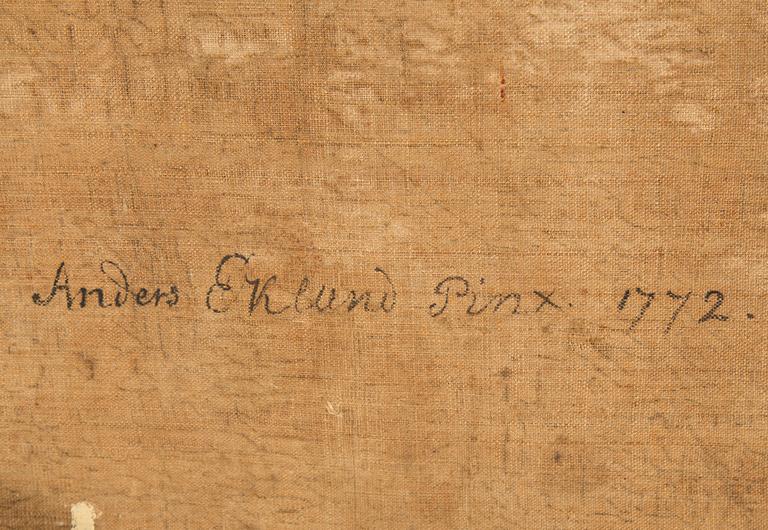 Anders Eklund Pinx. 1772.